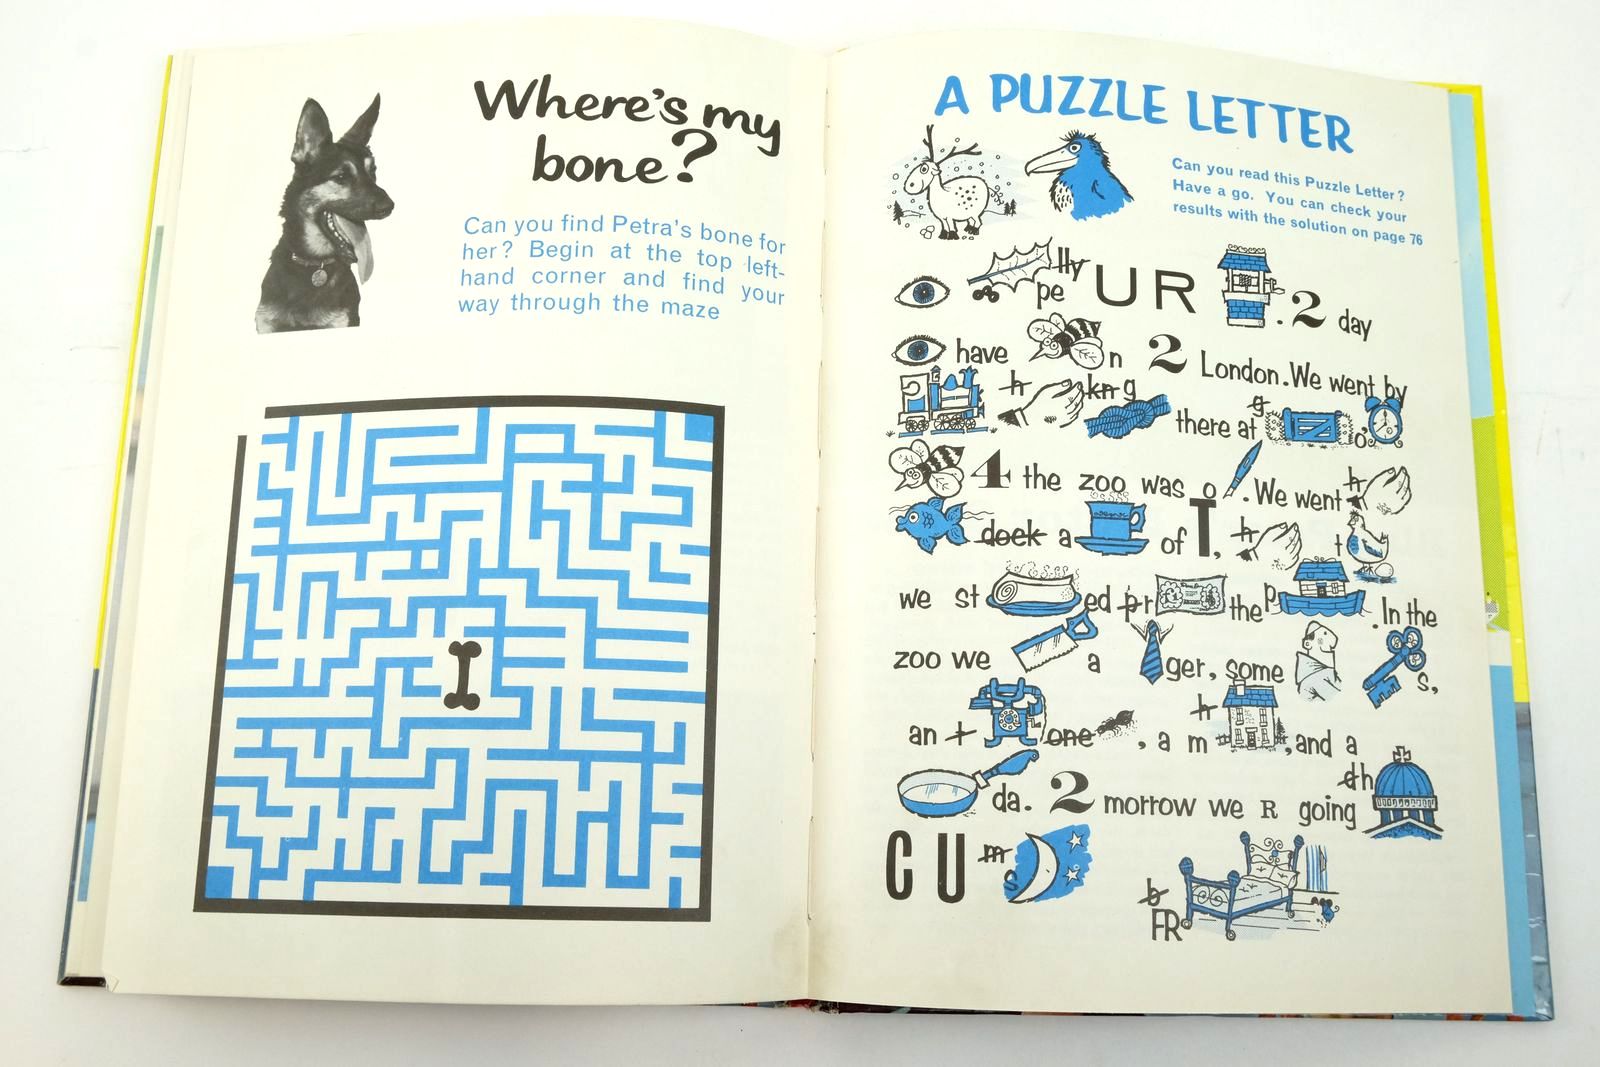 Where's my
bone?
Can you find Petra's bone for
her? Begin at the top left-
hand corner and find your
way through the maze
A PUZZLE LETTER
Can you read this Puzzle Letter?
Have a go. You can check your
results with the solution on page 76
lly pe U R . 2 day
have n 2 London. We went by
h kn g there at g o'
4 the zoo was o . We went h
dock a of T, h t
we st ed p r the p . In the
zoo we a ger, some s,
an t one , a m h , and a
da. 2 morrow we R going d h
C U m s
b FR